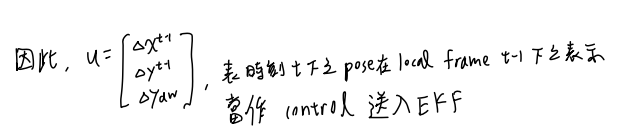 因此, u = [Δx^{t-1} Δy^{t-1} Δyaw], 表時刻 t 下之 pose在 local frame t-1 下之表示
當作 control 送入 EKF